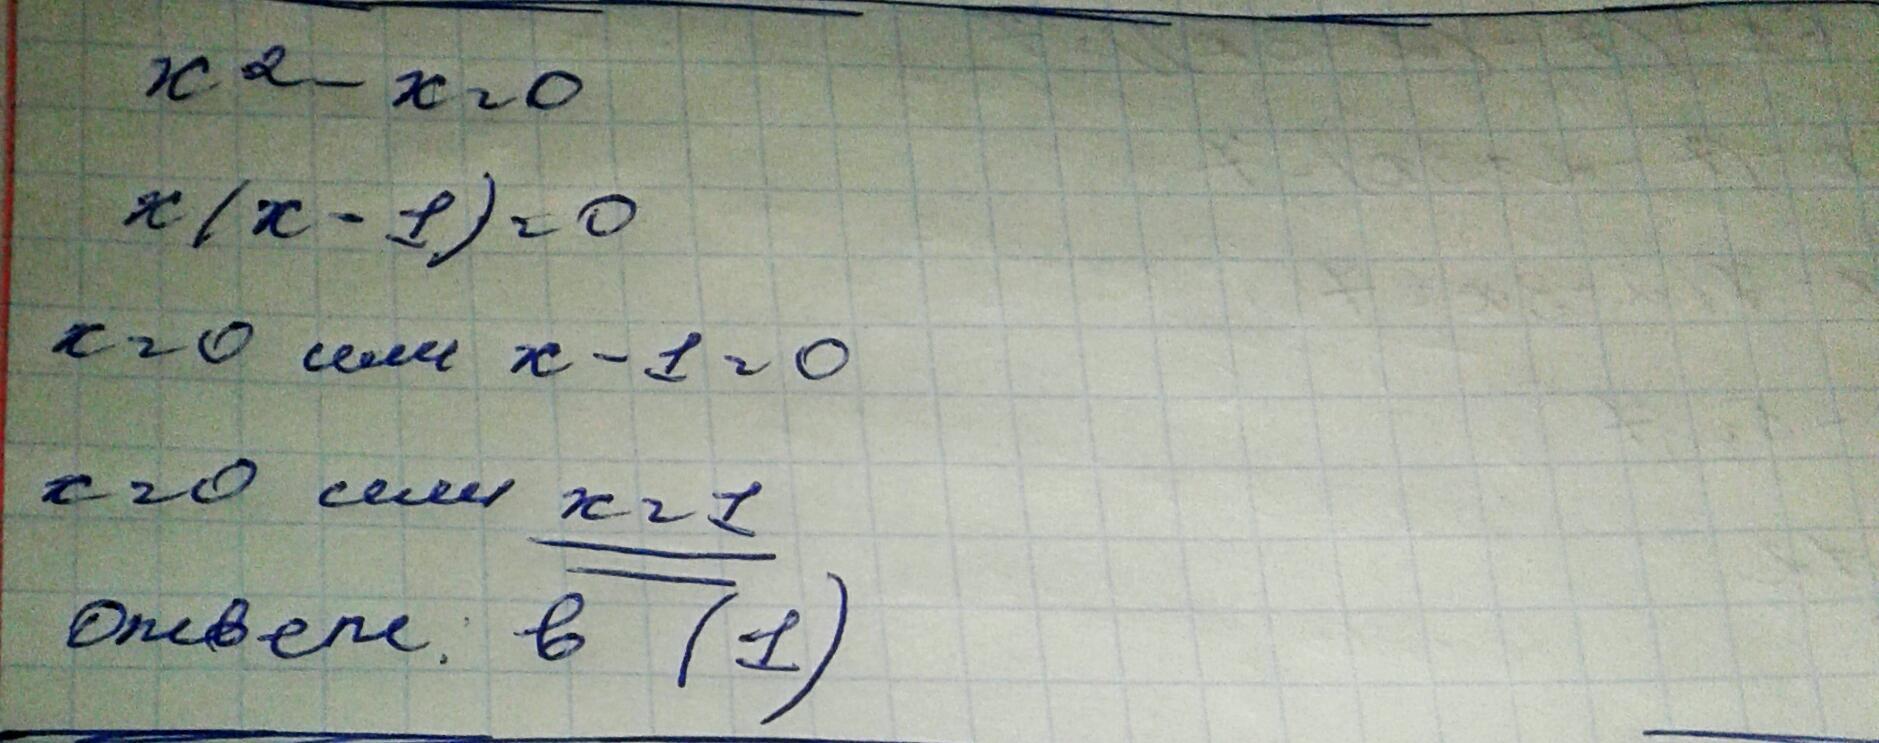 x² - x = 0
x(x - 1) = 0
x = 0 или x - 1 = 0
x = 0 или x = 1
Ответ: в (1)